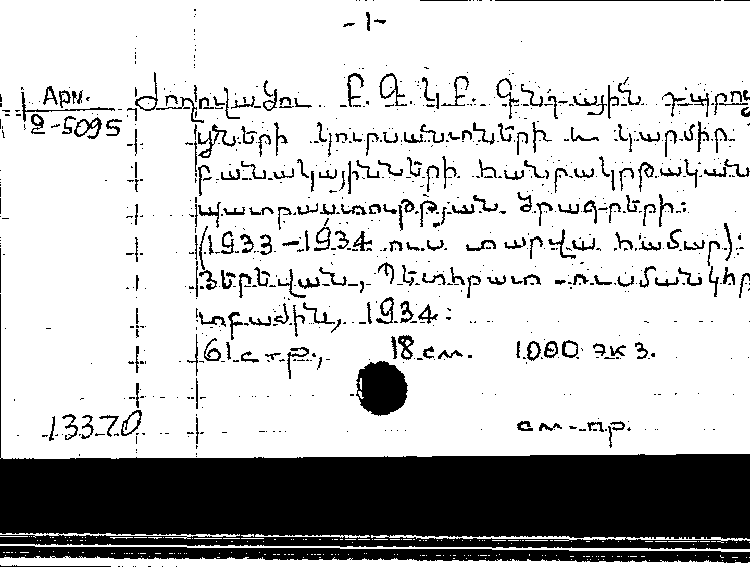 -1-
Арм.
2-5095
Ժողովածու Բ. Գ. Կ. Բ. Գնդային դպրոց
ցների կուրսանտների և կարմիր
բանակայինների հանրակրթական
պատրաստության ծրագրերի:
(1933-1934 ուս տարվա համար):
Յերեվան, Պետհրատ - ուսմանկհր
տբաժին, 1934:
61 стр., 18 см. 1000 экз.
13370
см-пр.